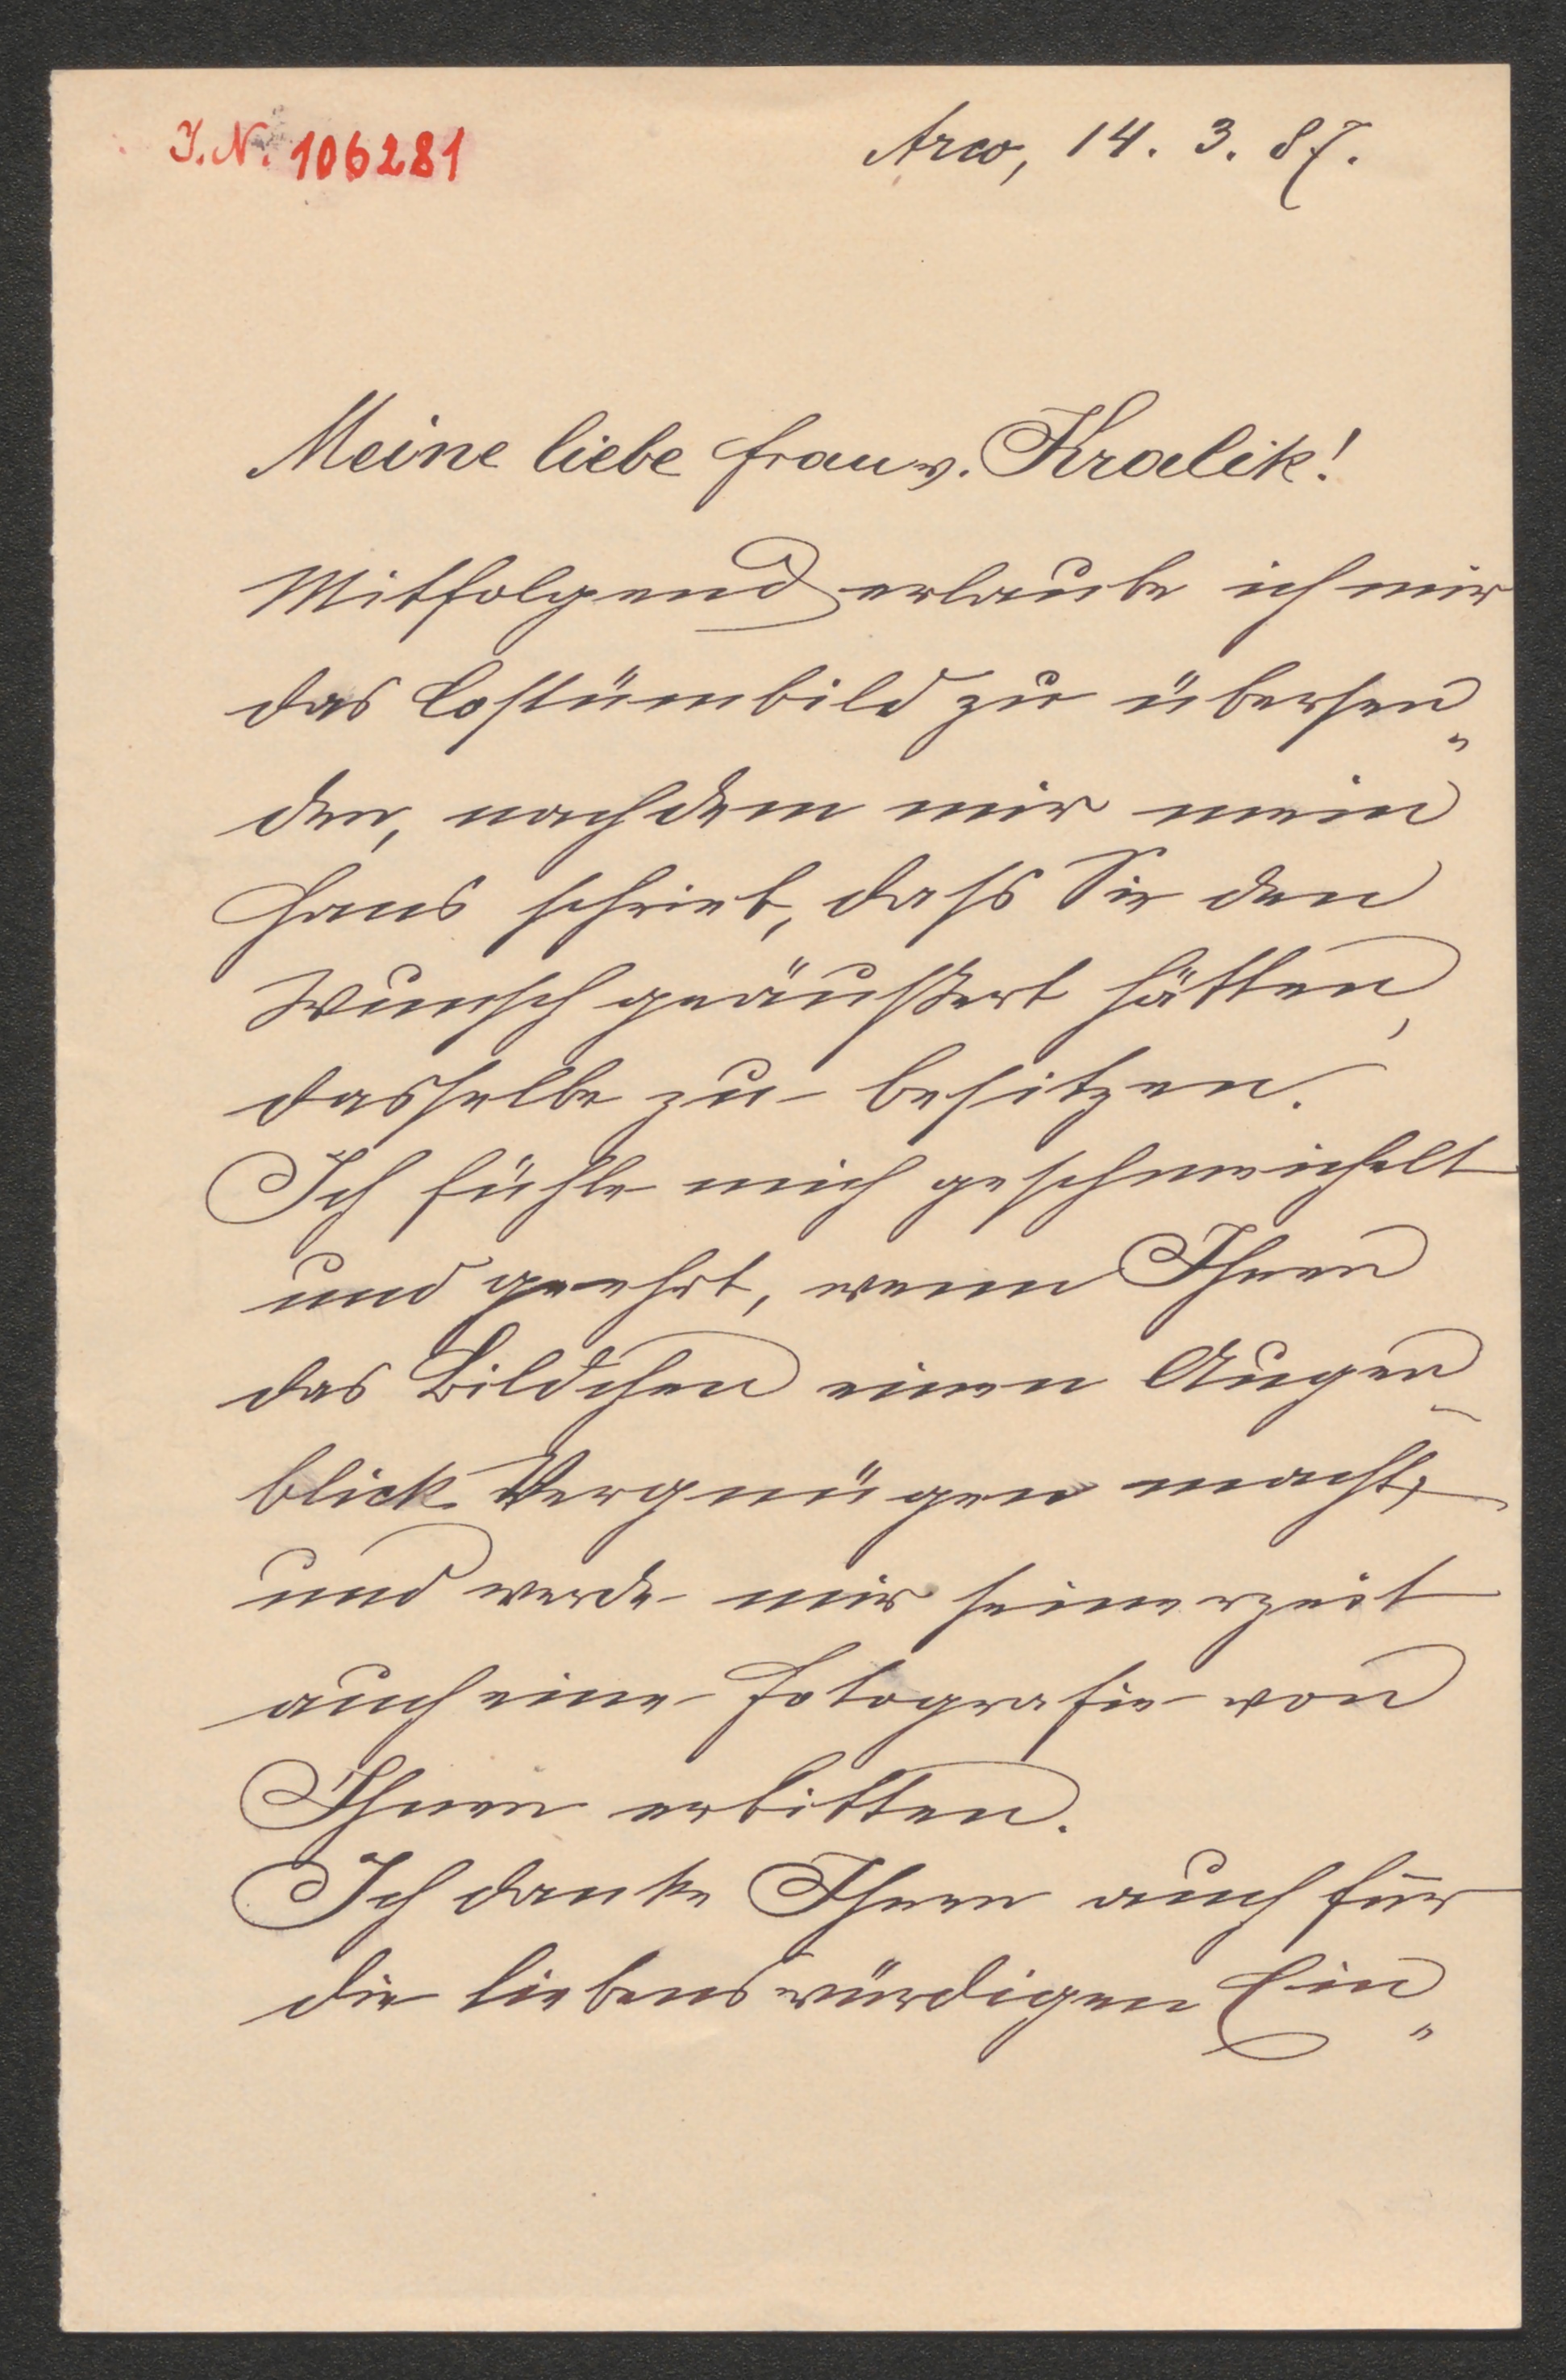 I.N. 106281
Arco, 14. 3. 87.
Meine liebe Frau v. Kralik!
Mitfolgend erlaube ich mir
das Costümbild zu übersen„
den, nachdem mir mein
Hans schrieb, dass Sie den
Wunsch geäußert hätten,
dasselbe zu besitzen.
Ich fühle mich geschmeichelt
und geehrt, wenn Ihnen
das Bildchen einen Augen-
blick Vergnügen macht,
und werde mir seinerzeit
auch eine Fotografie von
Ihnen erbitten.
Ich danke Ihnen auch für
die liebenswürdigen Ein„